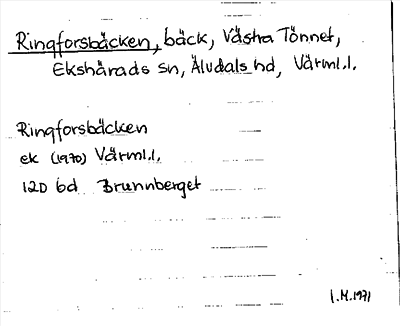 Ringforsbäcken, bäck, Västra Tönnet,
Ekshärads sn, Älvdals hd, Värml.l.
Ringforsbäcken
ek (1970) Värml.l.
12D 6d Brunnberget
I.M.1971